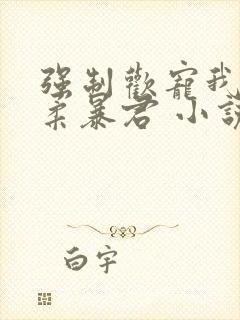 强制歡寵我
柔暴君 小說
白宇